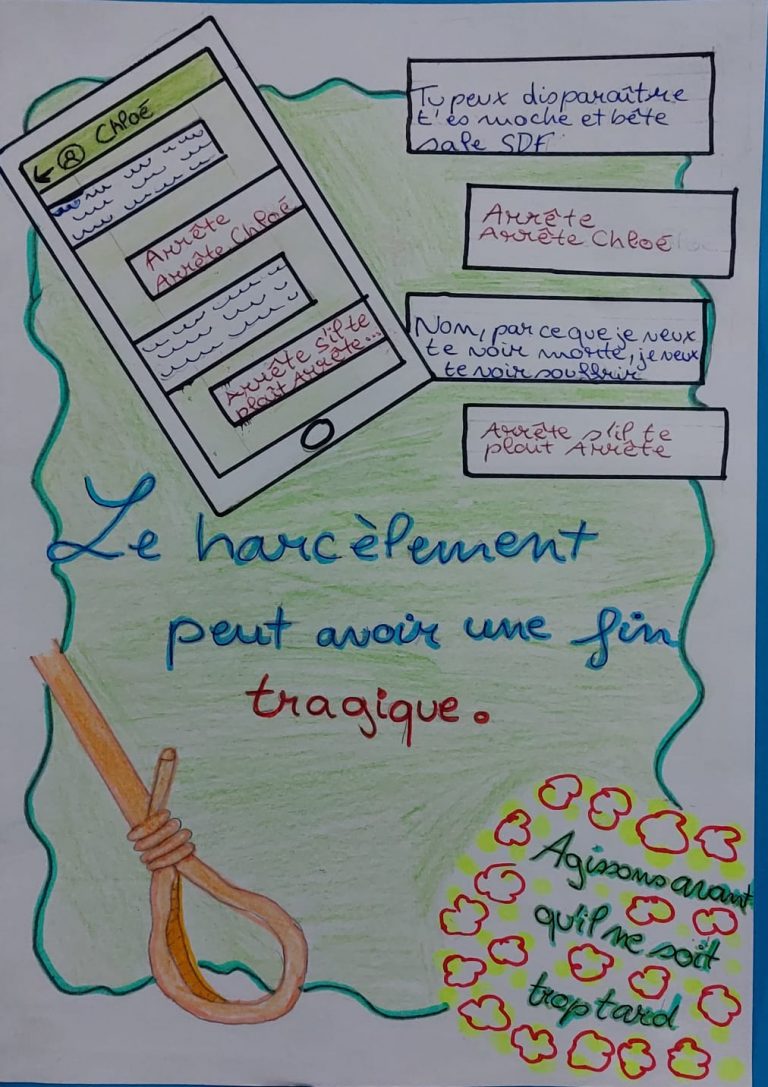 Chloé
Arrête
Arrête Chloé
Arrête S'il te
plaît Arrête...
Tu peux disparaître
t'es moche et bête
sale SDF
Arrête
Arrête Chloé
Non, parce que je veux
te voir morte, je veux
te voir souffrir
Arrête s'il te
plait Arrête
Le harcèlement
peut avoir une fin
tragique.
Agissons avant
qu'il ne soit
trop tard